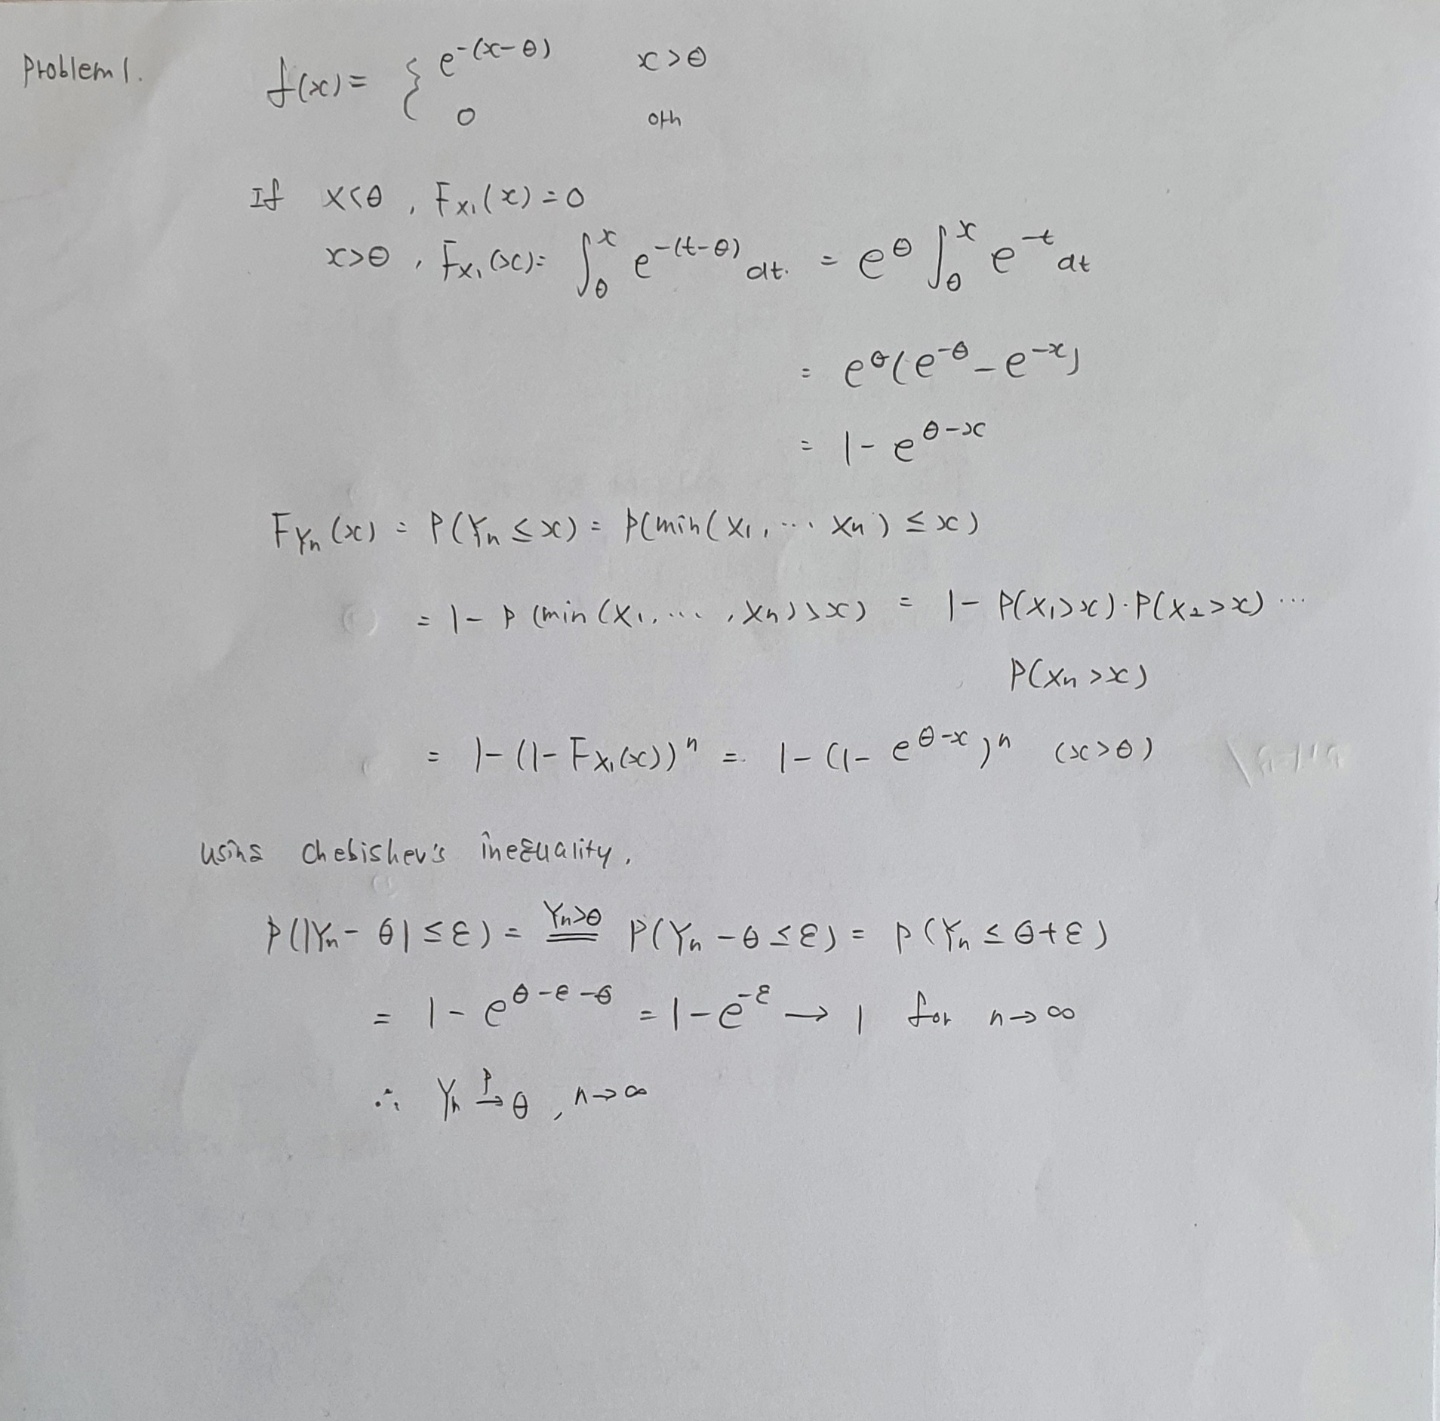 Problem 1. f(x) = { e^{-(x-θ)} x>θ
0 oth
If x<θ, F_{X_1}(x) = 0
x>θ, F_{X_1}(x) = ∫_θ^x e^{-(t-θ)} dt. = e^θ ∫_θ^x e^{-t} dt
= e^θ(e^{-θ} - e^{-x})
= 1 - e^{θ-x}
F_{Y_n}(x) = P(Y_n ≤ x) = P(min(X_1, ... X_n) ≤ x)
= 1 - P(min(X_1, ..., X_n) > x) = 1 - P(X_1 > x)·P(X_2 > x) ...
P(X_n > x)
= 1 - (1 - F_{X_1}(x))^n = 1 - (1 - e^{θ-x})^n (x>θ)
Using Chebishev's inequality,
P(|Y_n - θ| ≤ ε) = \overset{Y_n>θ}{=} P(Y_n - θ ≤ ε) = P(Y_n ≤ θ+ε)
= 1 - e^{θ-ε-θ} = 1 - e^{-ε} → 1 for n→∞
∴ Y_n \overset{P}{→} θ, n→∞